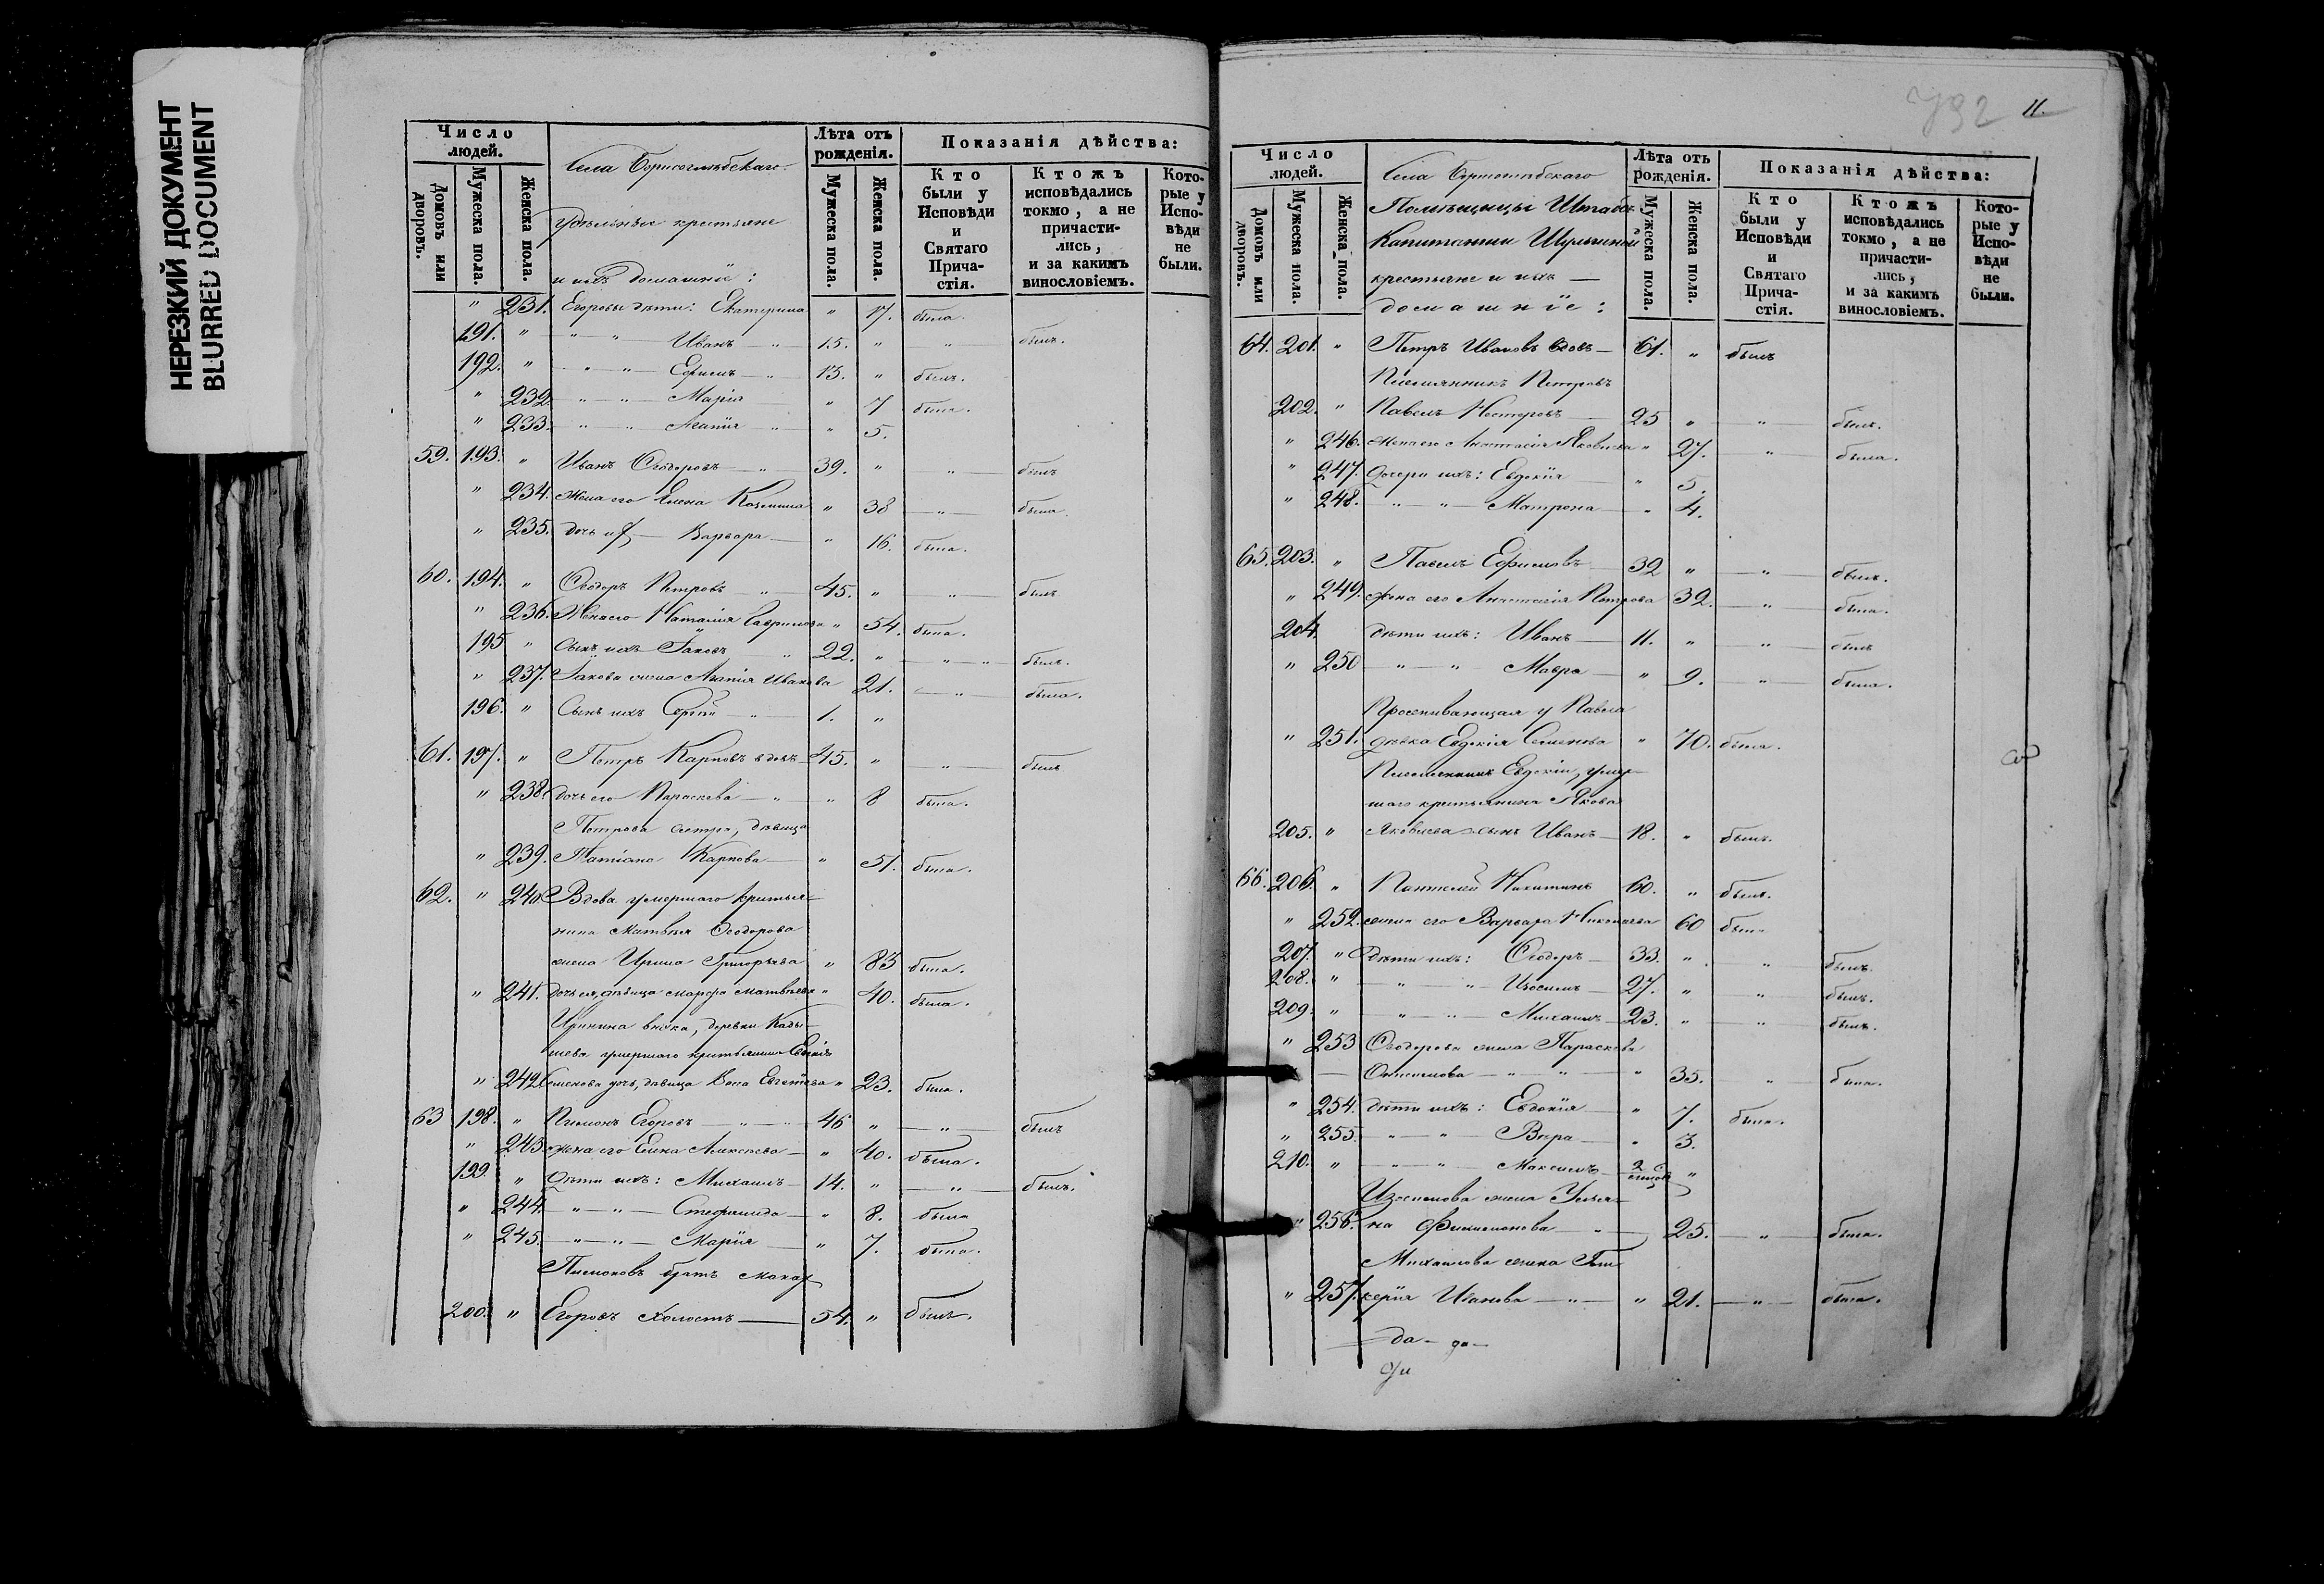 НЕРЕЗКИЙ ДОКУМЕНТ
BLURRED DOCUMENT
Число людей.
Домовъ или дворовъ.
Мужеска пола.
Женска пола.
Села Борисоглѣбскаго
Удѣльные крестьяне
и ихъ домашніе:
Лѣта отъ рожденія.
Мужеска пола.
Женска пола.
Показанія дѣйства:
Кто были у Исповѣди и Святаго Причастія.
Ктожъ исповѣдались токмо, а не причастились, и за какимъ винословіемъ.
Которые у Исповѣди не были.
" 231. Егоровы дѣти: Екатерина " 17. была.
191. " " " Иванъ " 15. " " былъ.
192. " " " Ефимъ " 13. " былъ.
" 232. " " Марія " 7 была.
" 233. " " Агапія " " 5.
59. 193. " Иванъ Ѳеодоровъ " 39. " " былъ
" 234. жена его Елена Козмина " 38 " была
" 235. дочь их Варвара " 16. была.
60. 194. " Ѳеодоръ Петровъ " 45. " " былъ
" 236. Жена его Наталія Гаврилова " 54. была.
195 " Сынъ ихъ Іаковъ " 22. " " " былъ.
" 237. Іакова жена Агапія Иванова 21. " была.
196. " Сынъ ихъ Сергій " 1. "
61. 197. " Петръ Карповъ вдовъ 45. " " былъ
" 238. дочь его Параскева " " 8 была.
Петрова сестра, дѣвица
" 239. Татіана Карпова " 51. была.
62. " 240 Вдова умершаго крестья-
нина Матвѣя Ѳеодорова
жена Ирина Григорьева " 83 была.
" 241. дочь ея, дѣвица Марѳа Матвѣева " 40. была.
Иринина внука, деревни Кады-
шева умершаго крестьянина
" 242. Семенова дочь, дѣвица " 23. была.
63 198. " Пимонъ Егоровъ " " 46 " " былъ
" 243. жена его Елена Алексѣева " 40. была.
199. " Дѣти ихъ: Михаилъ 14. " " былъ.
" 244. " " Стефанида " 8. была
" 245. " " Марія " 7. была.
Пимоновъ братъ Макар
200. " Егоровъ холостъ 54. " былъ.
11.
Число людей.
Домовъ или дворовъ.
Мужеска пола.
Женска пола.
Села Борисоглѣбскаго
Помѣщицы Штабсъ
Капитанши Шульгиной
крестьяне и ихъ
домашніе:
Лѣта отъ рожденія.
Мужеска пола.
Женска пола.
Показанія дѣйства:
Кто были у Исповѣди и Святаго Причастія.
Ктожъ исповѣдались токмо, а не причастились, и за какимъ винословіемъ.
Которые у Исповѣди не были.
64. 201. " Петръ Ивановъ вдовъ 61. " былъ
Племянникъ Петровъ
202. " Павелъ Нестеровъ 25 " " былъ.
" 246. жена его Анастасія Яковлева " 27. " была.
" 247. Дочери ихъ: Евдокія " 5.
" 248. " " Матрона " 4.
65. 203. " Павелъ Ефимовъ 32 " " былъ.
" 249. жена его Анастасія Петрова 32. " была.
204. дѣти ихъ: Иванъ 11. " " былъ
" 250 " " Мавра " 9. " была.
Проживающая у Павла
" 251. дѣвка Евдокія Семенова " 70. была.
Племянникъ Евдокіи, умер-
шаго крестьянина Якова
205. " Яковлева сынъ Иванъ 18. " былъ.
66. 206. " Пантелей Никитинъ 60. " былъ.
" 252. жена его Варвара Николаева 60 была
207. " Дѣти ихъ: Ѳеодоръ 33. " " былъ.
208. " " " Изосимъ 27. " " былъ.
209. " " " Михаилъ 23. " " былъ.
" 253 Ѳеодорова жена Параскева
Онисимова " " " 35. " была.
" 254. дѣти ихъ: Евдокія " 7. была.
" 255. " " Вѣра " 3.
210. " " " Максимъ 2 мѣсяцовъ "
Изосимова жена Улья-
" 256. на Филимонова " 25. " была.
Михаилова жена Гли-
" 257. керія Иванова " " 21. " была.